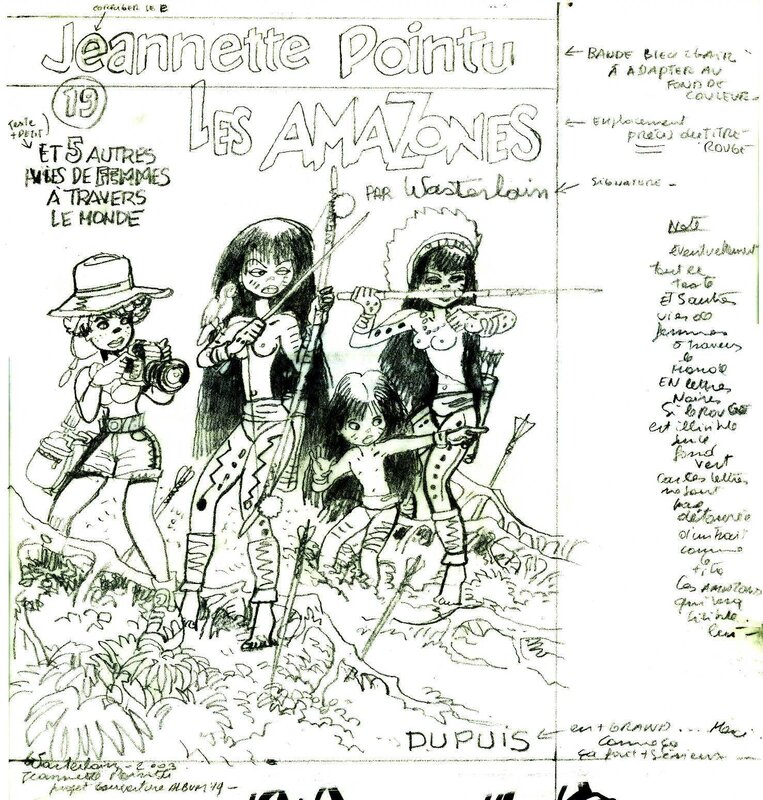 CORRIGER LE E
Jeannette Pointu
19
LES AMAZONES
texte
+ PETIT
ET 5 AUTRES
VIES DE FEMMES
À TRAVERS
LE MONDE
PAR Wasterlain
← BANDE BLEU CLAIR
À ADAPTER AU
FOND DE
COULEUR -
← Emplacement
précis du TITRE
ROUGE
← SIGNATURE -
Note
éventuellement
tout ce
texte
ET 5 autres
vies de
femmes
à travers
le
Monde
EN lettres
Noires
Si le ROUGE
est illisible
sur le
fond
vert
car les lettres
ne sont
pas
détourée
d'un trait
comme
le
titre
Les AMAZONES
qui sera
lisible
lui -
DUPUIS
← en + GRAND ... Merci
Comme ça
ça fait + Sérieux -
Wasterlain - 2003
Jeannette Pointu
projet couverture ALBUM 19 -